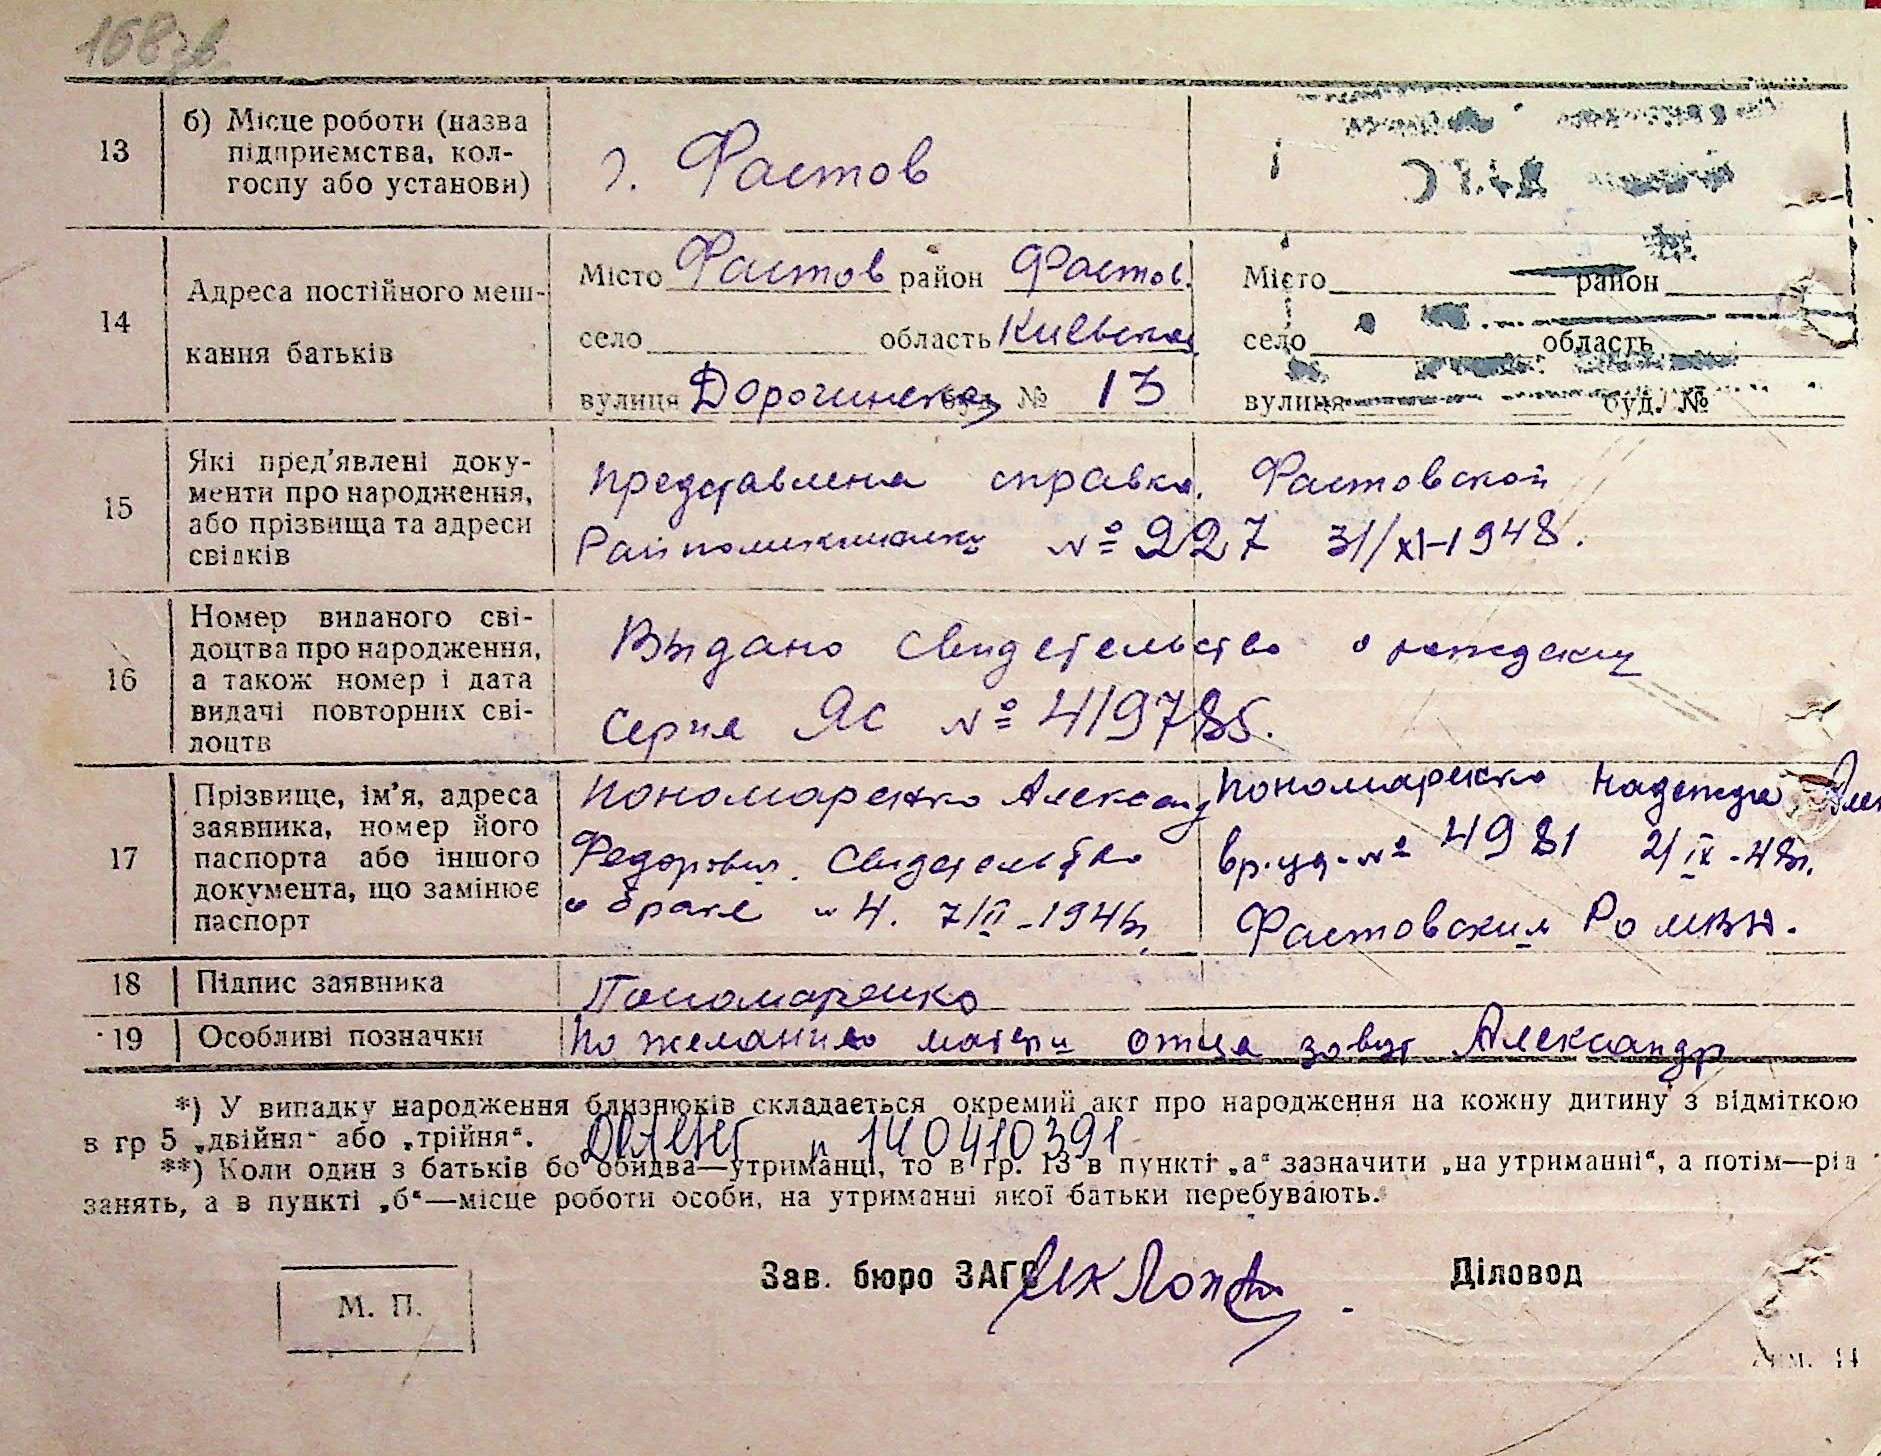 168 зв.
13 б) Місце роботи (назва підприємства, колгоспу або установи) г. Фастов
14 Адреса постійного мешкання батьків
Місто Фастов район Фастов.
село область Киевская
вулиця Дорогинская буд. № 13
Місто район
село область
вулиця буд. №
15 Які пред'явлені документи про народження, або прізвища та адреси свідків
представлена справка Фастовской
Райполиклиники № 227 31/XI-1948.
16 Номер виданого свідоцтва про народження, а також номер і дата видачі повторних свідоцтв
Выдано свидетельство о рождении
серия ЯС № 419785.
17 Прізвище, ім'я, адреса заявника, номер його паспорта або іншого документа, що замінює паспорт
Пономаренко Александ
Федорович. Свидетельство
о браке № 4. 7/II-194
Пономаренко Надежда Алек
вр.уд. № 4981 2/IX-48г.
Фастовским РО МВД.
18 Підпис заявника Пономаренко
19 Особливі позначки По желанию матери отца зовут Александр
*) У випадку народження близнюків складається окремий акт про народження на кожну дитину з відміткою
в гр 5 „двійня" або „трійня".
140410391
**) Коли один з батьків бо обидва—утриманці, то в гр. 13 в пункті „а" зазначити „на утриманні", а потім—рід
занять, а в пункті „б"—місце роботи особи, на утриманні якої батьки перебувають.
Зав. бюро ЗАГС Діловод
М. П.